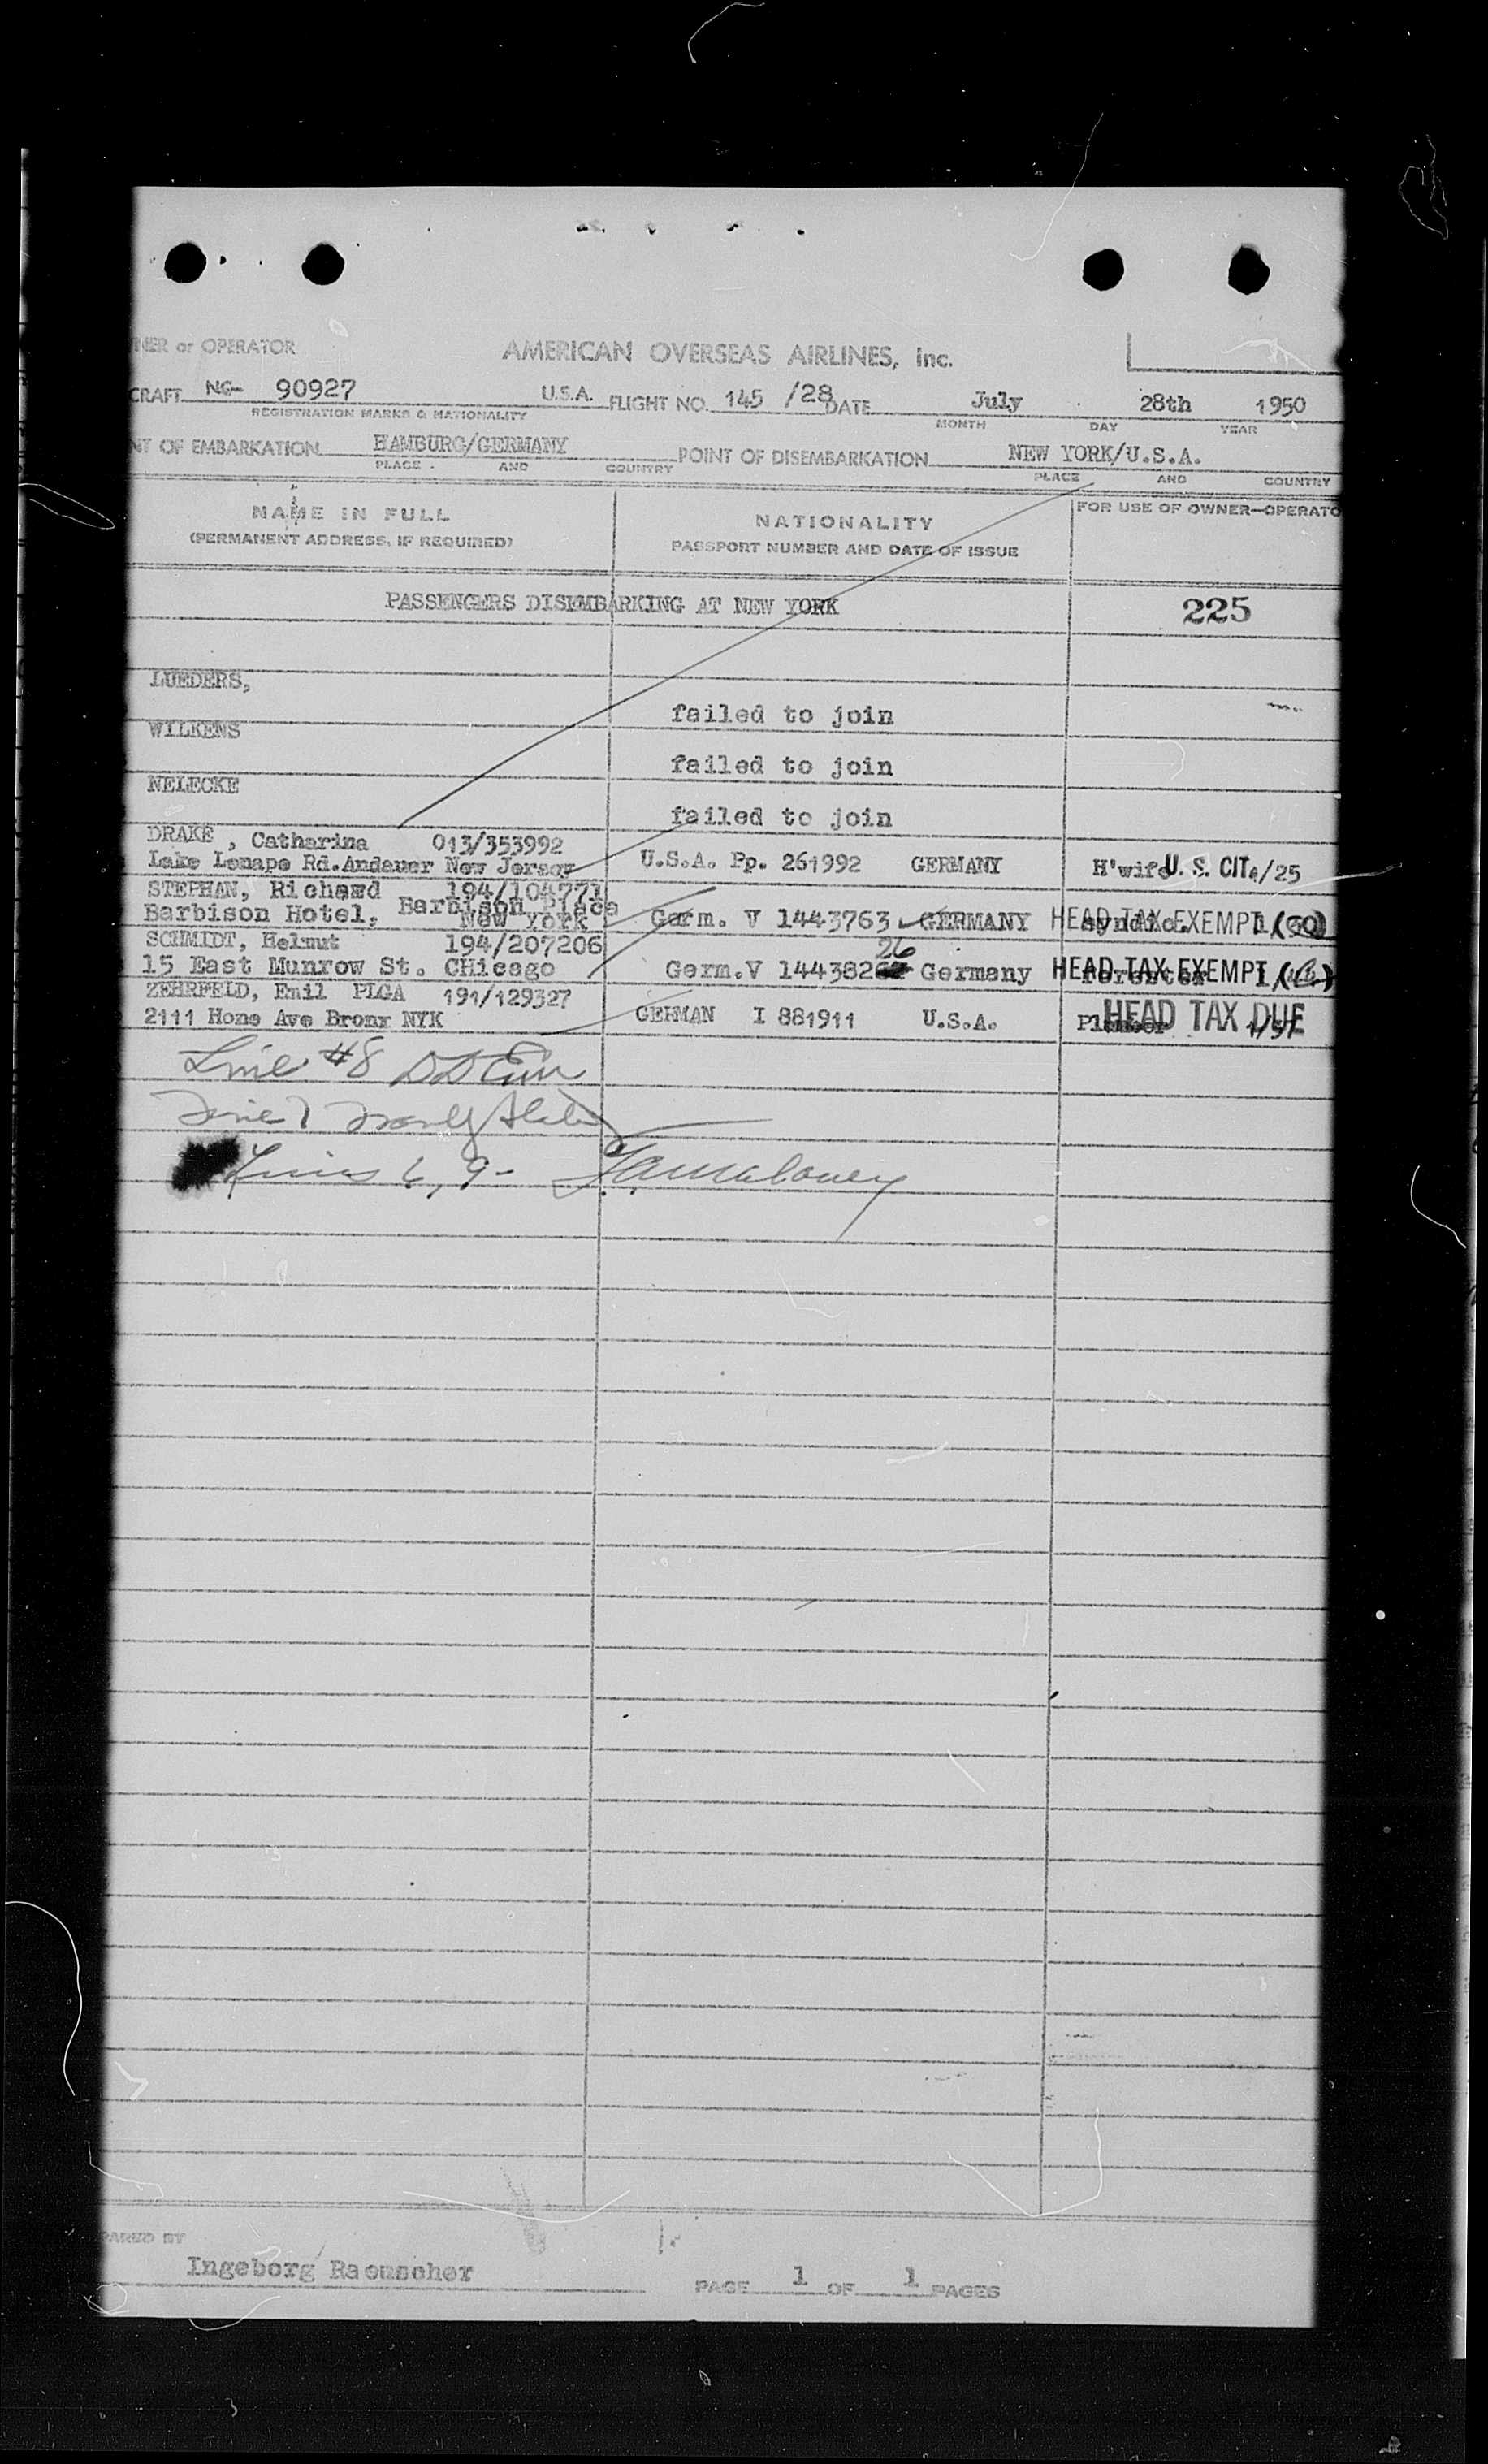 NER or OPERATOR AMERICAN OVERSEAS AIRLINES, Inc.
CRAFT NC- 90927 U.S.A. FLIGHT NO. 145 /28 DATE July 28th 1950
REGISTRATION MARKS & NATIONALITY MONTH DAY YEAR
NT OF EMBARKATION HAMBURG/GERMANY POINT OF DISEMBARKATION NEW YORK/U.S.A.
PLACE AND COUNTRY PLACE AND COUNTRY
NAME IN FULL NATIONALITY FOR USE OF OWNER—OPERATO
(PERMANENT ADDRESS, IF REQUIRED) PASSPORT NUMBER AND DATE OF ISSUE
PASSENGERS DISEMBARKING AT NEW YORK 225
LUEDERS,
failed to join
WILKENS
failed to join
NELECKE
failed to join
DRAKE , Catharina 013/353992
Lake Lenape Rd. Andover New Jersey U.S.A. Pp. 261992 GERMANY H'wife U. S. CIT. /25
STEPHAN, Richard 194/104771
Barbison Hotel, Barbison Place New York Germ. V 1443763 GERMANY HEAD TAX EXEMPT
SCHMIDT, Helmut 194/207206 26
15 East Munrow St. CHicago Germ.V 144382 Germany HEAD TAX EXEMPT
ZEHRFELD, Emil PLGA 191/129327
2111 Hone Ave Bronx NYK GERMAN I 881911 U.S.A. Plumber HEAD TAX DUE
Line #8
Line 7
Lines 6, 9- Maloney
PARED BY
Ingeborg Raeuscher PAGE 1 OF 1 PAGES